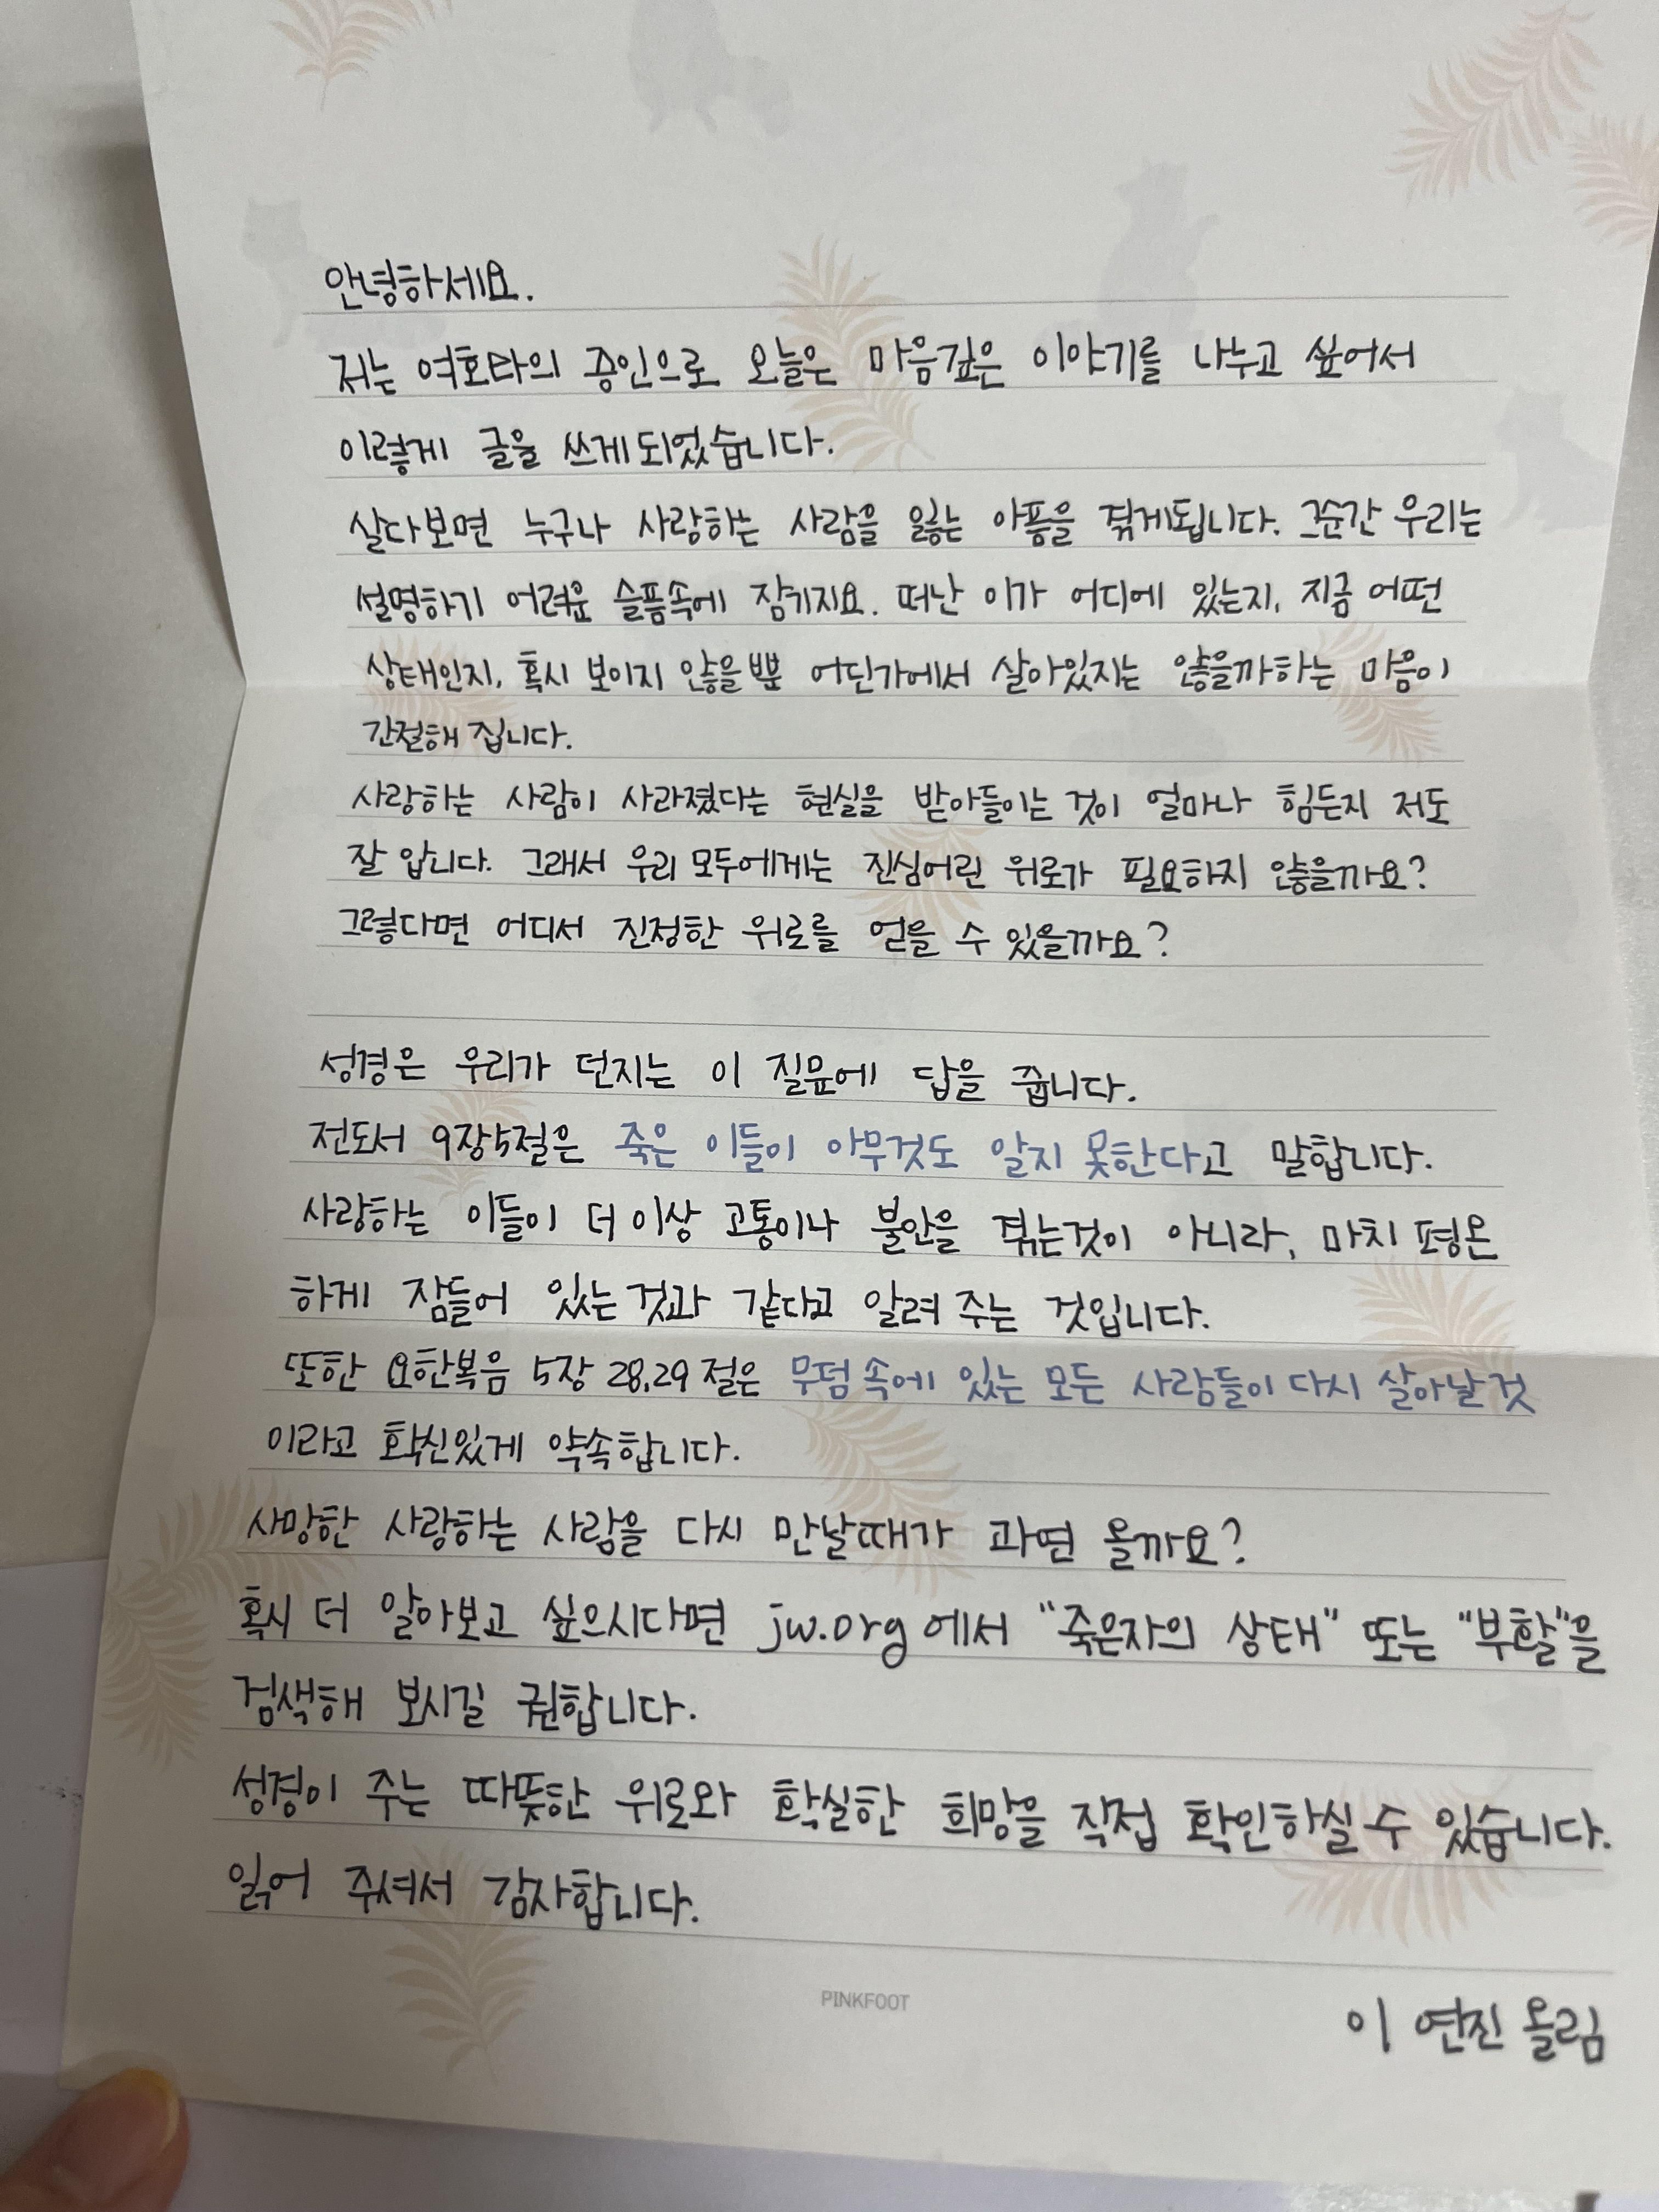 안녕하세요.
저는 여호와의 증인으로 오늘은 마음깊은 이야기를 나누고 싶어서
이렇게 글을 쓰게되었습니다.
살다보면 누구나 사랑하는 사람을 잃는 아픔을 겪게됩니다. 그순간 우리는
설명하기 어려운 슬픔속에 잠기지요. 떠난 이가 어디에 있는지, 지금 어떤
상태인지, 혹시 보이지 않을뿐 어딘가에서 살아있지는 않을까하는 마음이
간절해 집니다.
사랑하는 사람이 사라졌다는 현실을 받아들이는 것이 얼마나 힘든지 저도
잘 압니다. 그래서 우리 모두에게는 진심어린 위로가 필요하지 않을까요?
그렇다면 어디서 진정한 위로를 얻을 수 있을까요?
성경은 우리가 던지는 이 질문에 답을 줍니다.
전도서 9장5절은 죽은 이들이 아무것도 알지 못한다고 말합니다.
사랑하는 이들이 더 이상 고통이나 불안을 겪는것이 아니라, 마치 평온
하게 잠들어 있는 것과 같다고 알려 주는 것입니다.
또한 요한복음 5장 28,29 절은 무덤 속에 있는 모든 사람들이 다시 살아날 것
이라고 확신있게 약속합니다.
사망한 사랑하는 사람을 다시 만날때가 과연 올까요?
혹시 더 알아보고 싶으시다면 jw.org 에서 "죽은자의 상태" 또는 "부활"을
검색해 보시길 권합니다.
성경이 주는 따뜻한 위로와 확실한 희망을 직접 확인하실 수 있습니다.
읽어 주셔서 감사합니다.
PINKFOOT
이 연진 올림